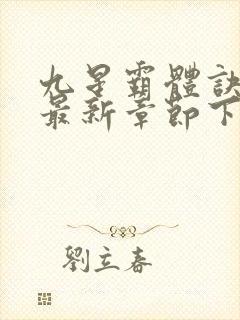 九星霸體訣
最新章節下
劉立春